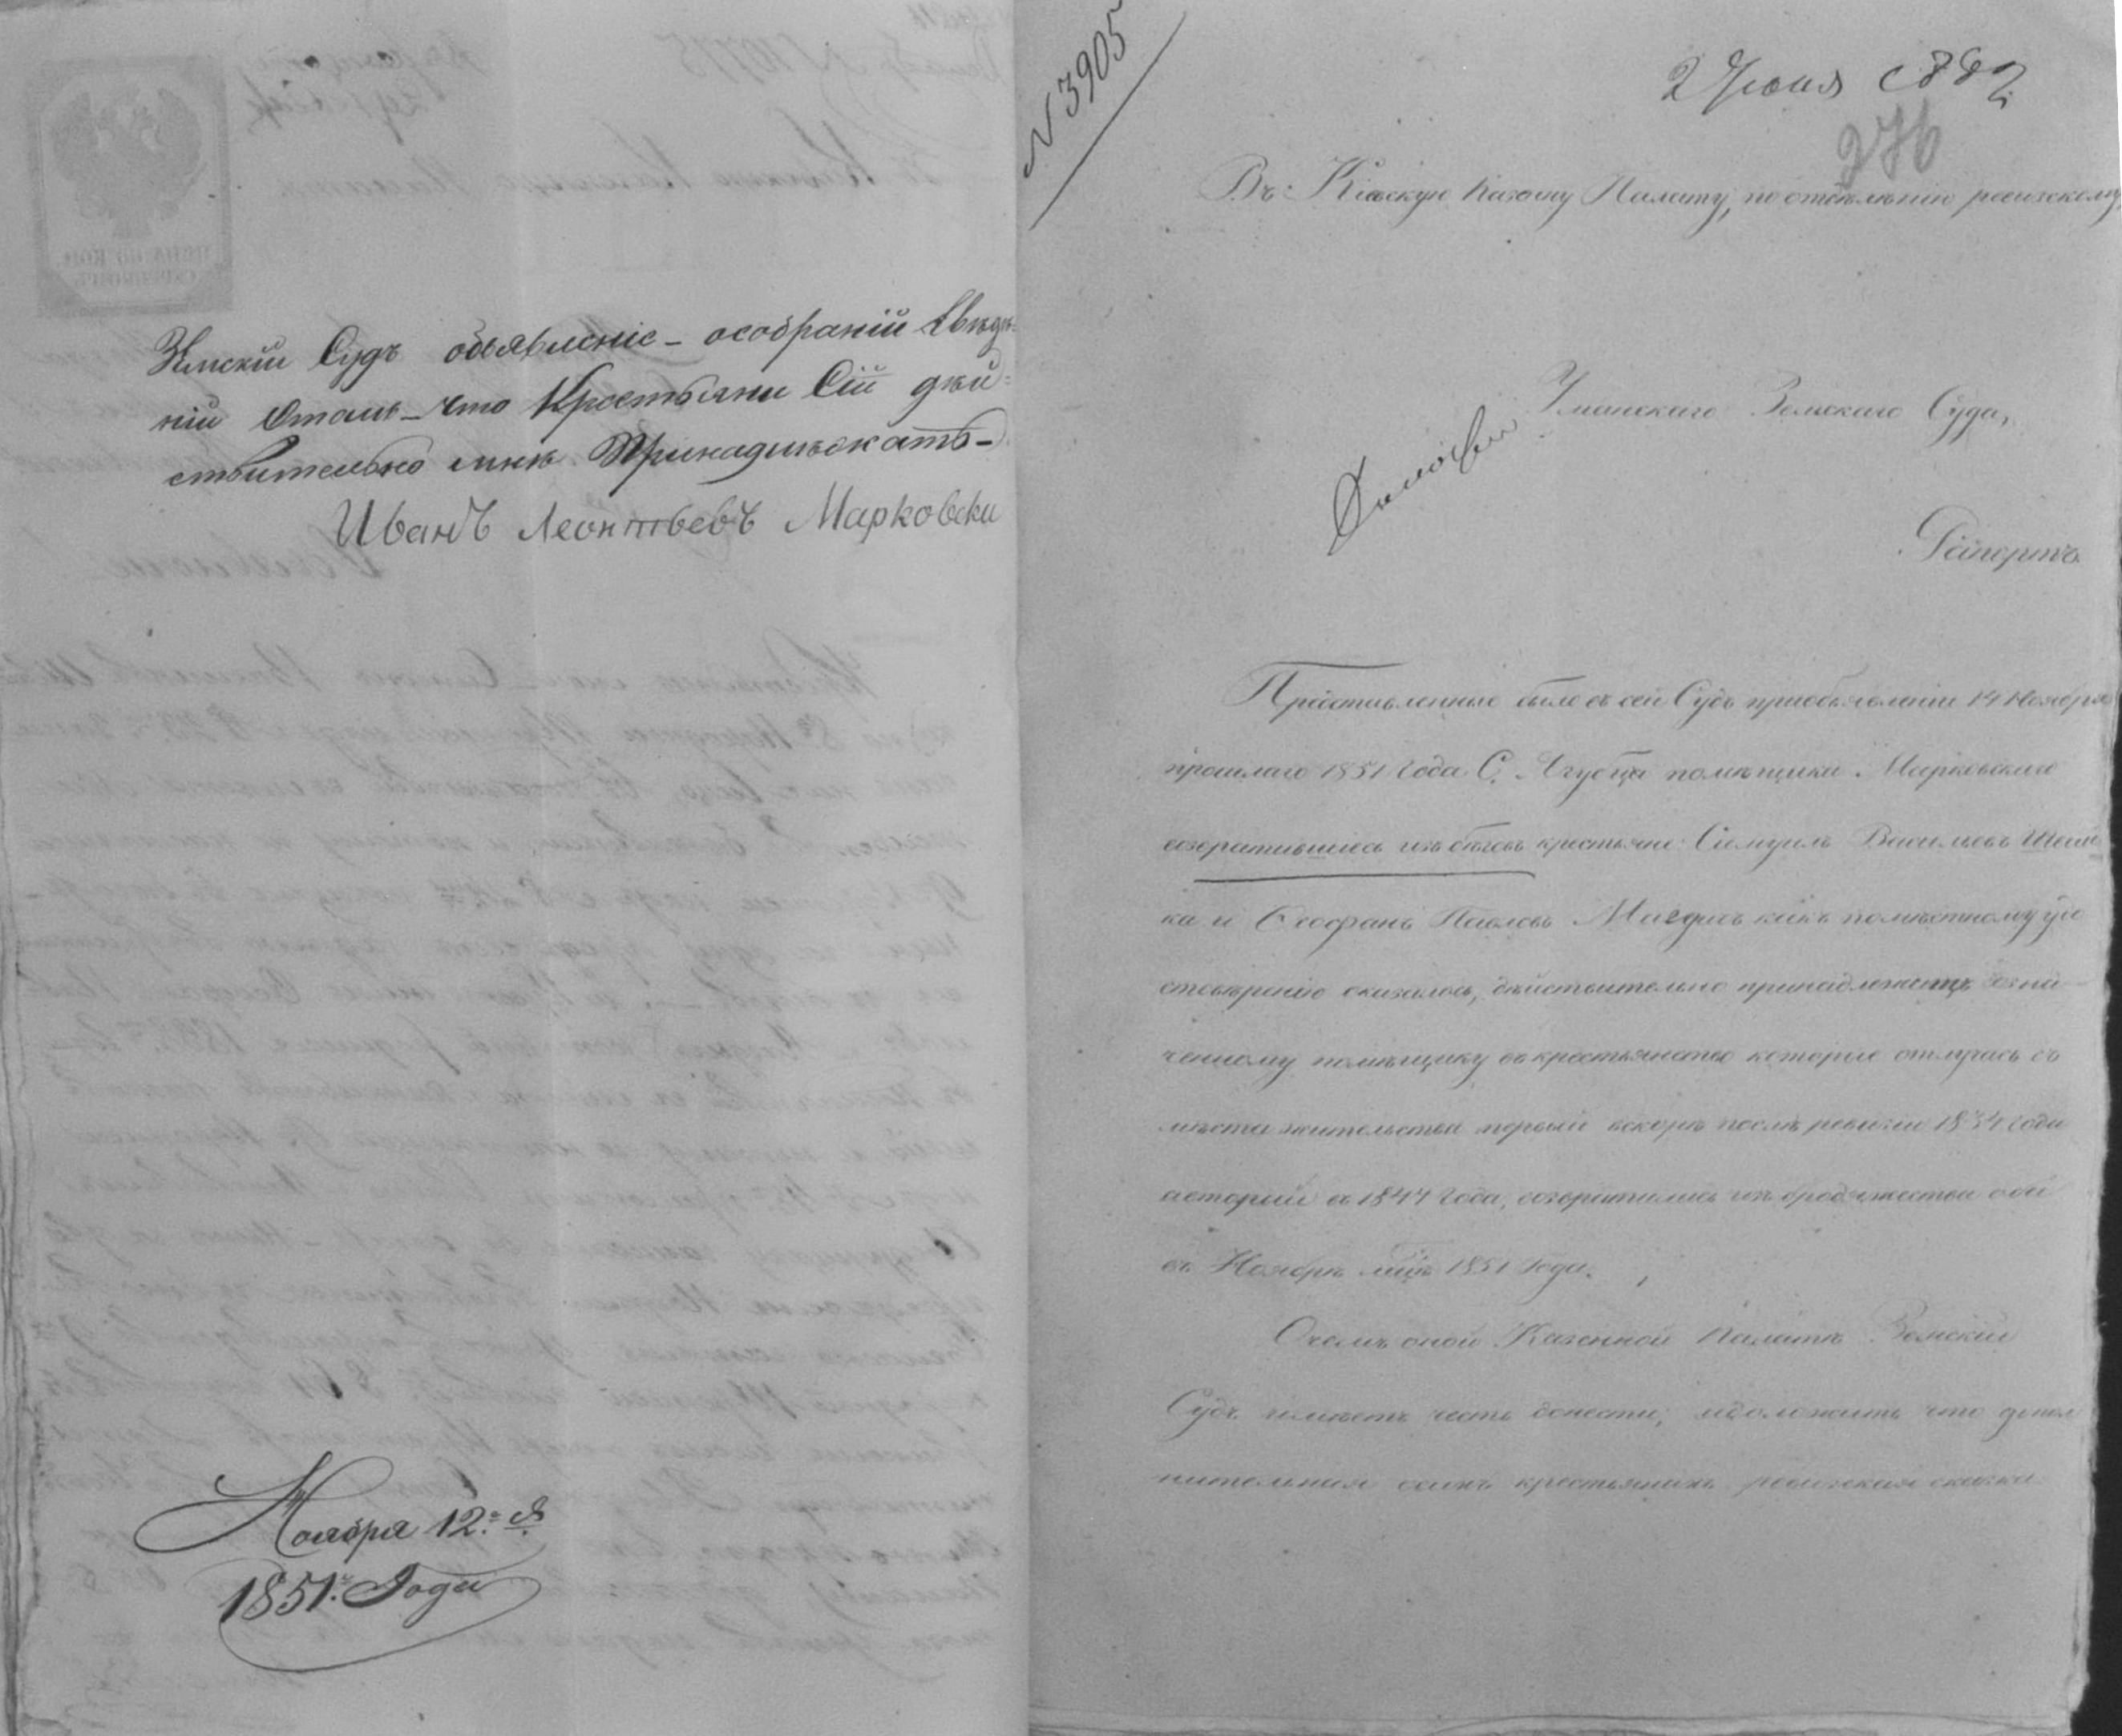 Земскій Судъ объявленіе – особраній Свѣдѣ=
ній Отомъ – что Крестьяни Сій дѣй=
ствительно мнѣ Принадилѣжатъ –
Иванъ Леонтьевъ Марковски
Ноября 12.
1851. Года
N 3905
2 Іюня 1882
276
Въ Кіевскую Казенну Палату, по отдѣленію ревизскому
Уманскаго Земскаго Суда,
Рапортъ
Представленные были въ сей Судъ приобъявленіи 14 Ноября
прошлаго 1851 года С. Ягубца помѣщики Марковскаго
возвратившіеся изъ бѣговъ крестьяне: Самуилъ Васильевъ
ка и Феофанъ Павловъ какъ помѣстному удо
стовѣренію оказалось, дѣйствительно принадлежатъ озна
ченному помѣщику въ крестьянство которые отлучась съ
мѣста жительства первый вскорѣ послѣ ревизіи 1834 года
авторый въ 1844 года, возвратились изъ бродяжества оба
въ Ноябрѣ мцѣ 1851 года.
Очемъ оной Казенной Палатѣ Земскій
Судъ имѣетъ честь донести, идоложить что допол
нительная симъ крестьянамъ ревизская сказка